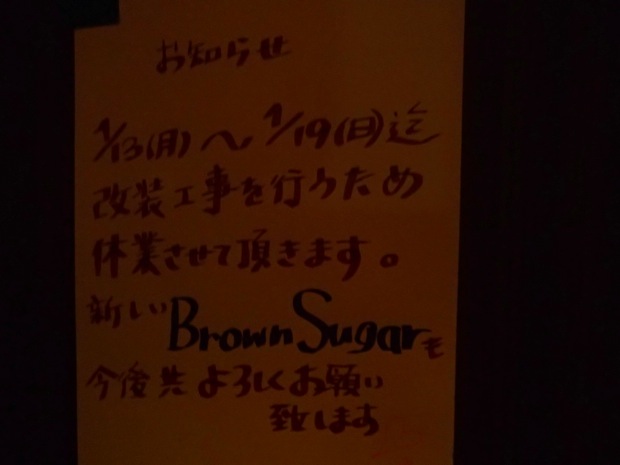 お知らせ
1/13(月)〜1/19(日)迄
改装工事を行うため
休業させて頂きます。
新しいBrown Sugarを
今後共よろしくお願い
致します